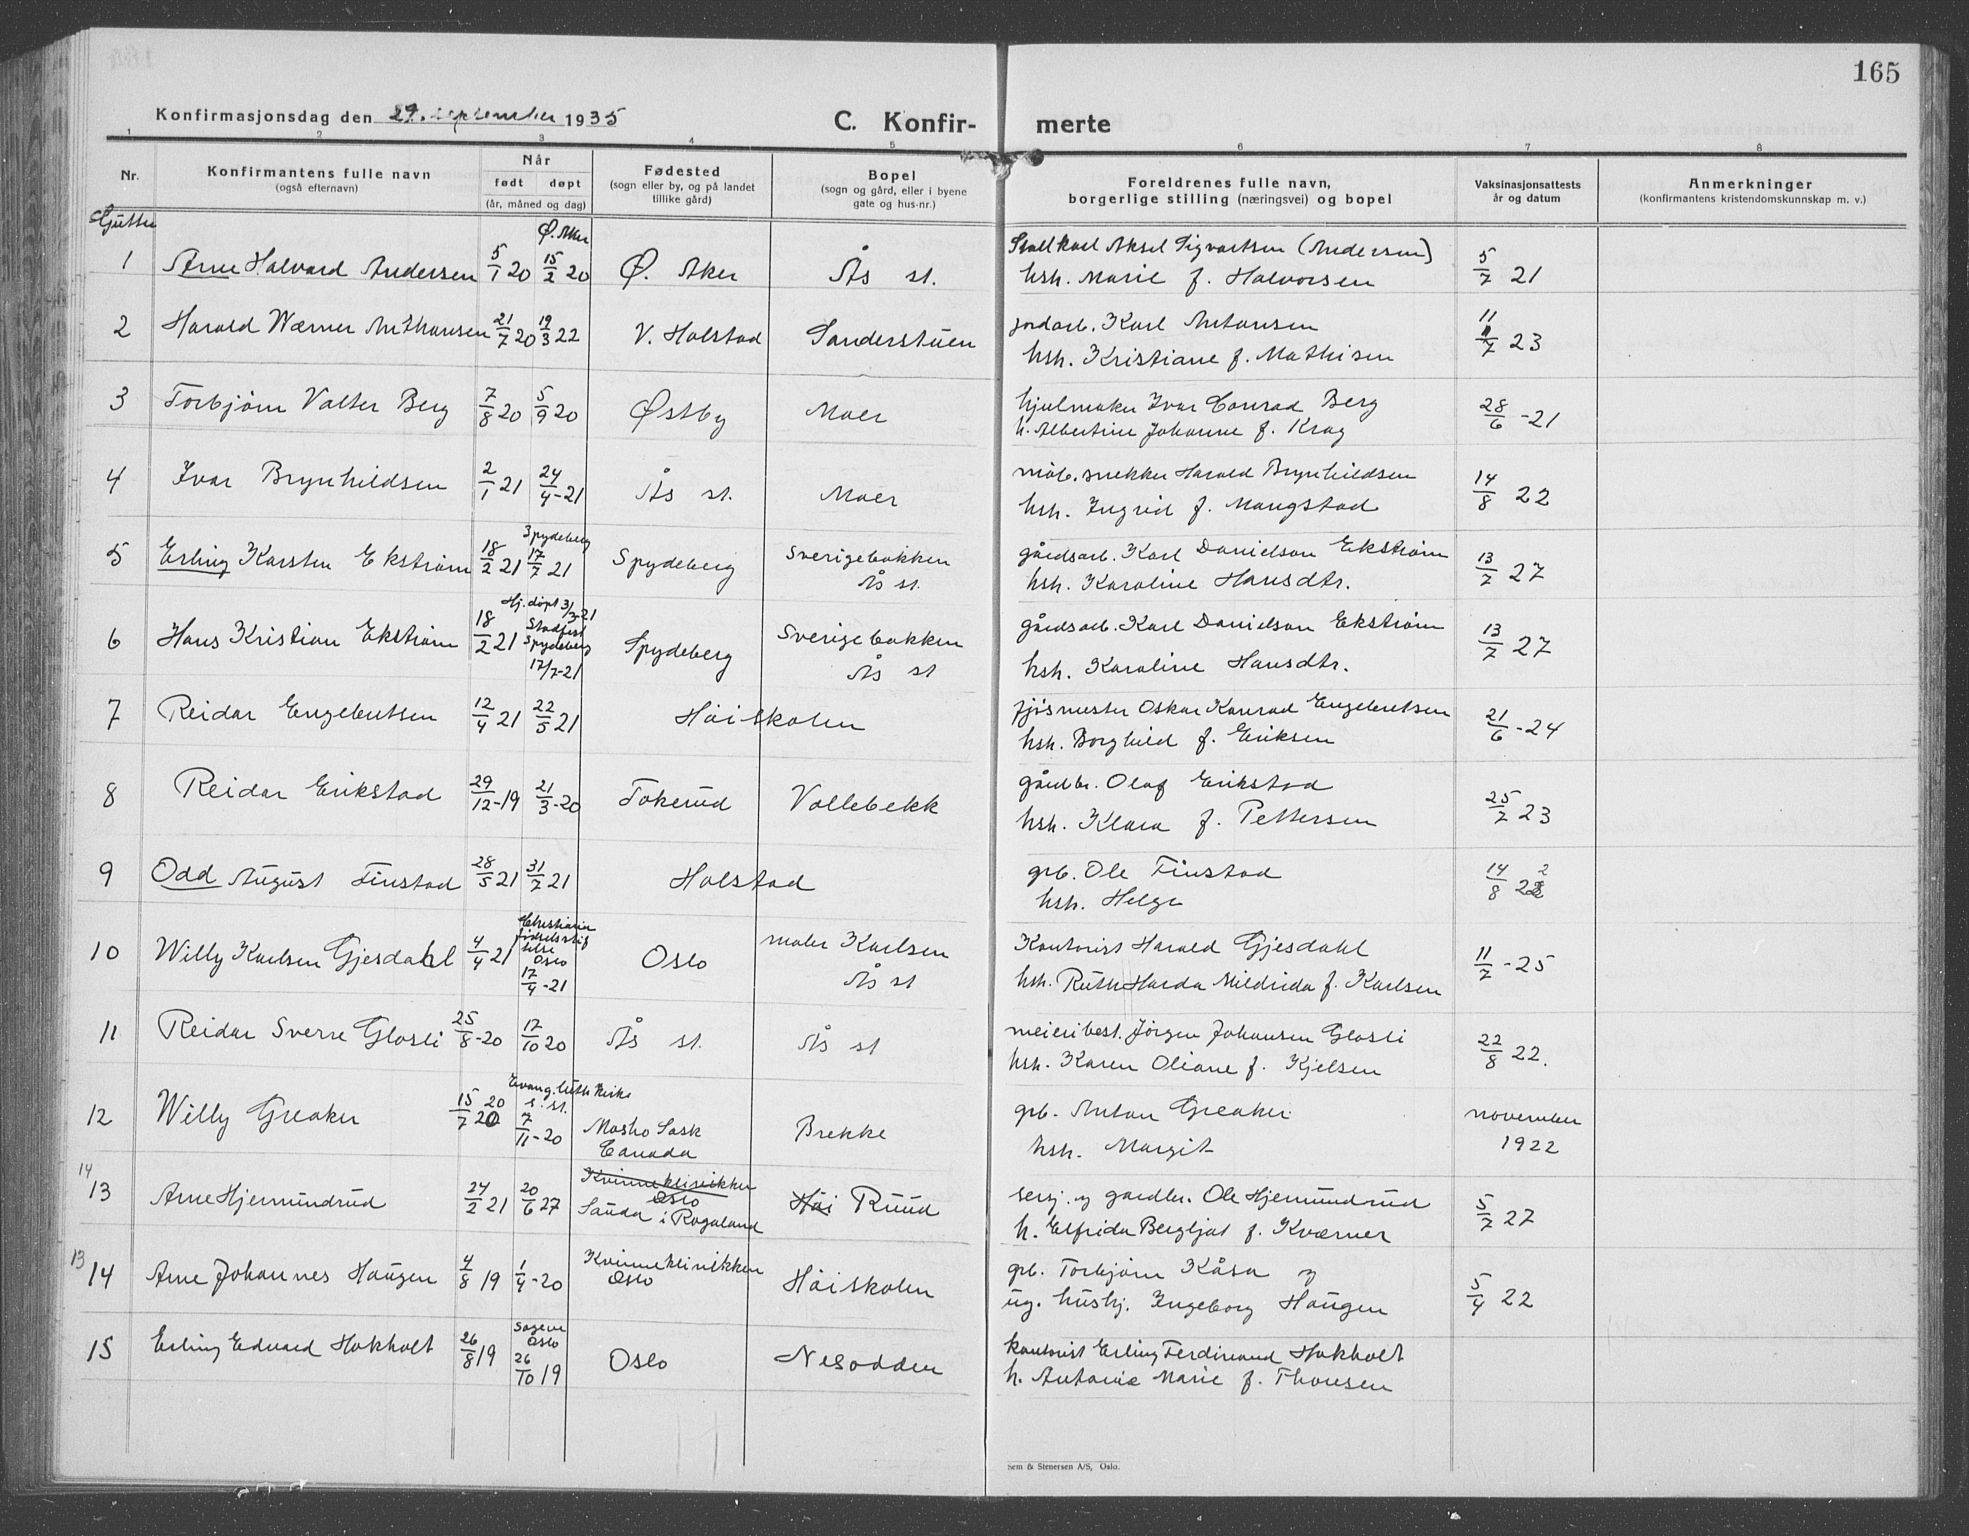 165
Konfirmasjonsdag den 29. september 1935
C. Konfir- merte
1 2 3 4 5 6 7 8
Nr.
Konfirmantens fulle navn
(også efternavn)
Når
født døpt
(år, måned og dag)
Fødested
(sogn eller by, og på landet
tillike gård)
Bopel
(sogn og gård, eller i byene
gate og hus-nr.)
Foreldrenes fulle navn,
borgerlige stilling (næringsvei) og bopel
Vaksinasjonsattests
år og datum
Anmerkninger
(konfirmantens kristendomskunnskap m. v.)
Gutter
1 Arne Halvard Andersen 5/1 20 Ø. Aker 15/2 20 Ø. Aker Ås st. Stallkarl Aksel Sigvartsen (Andersen)
hsh. Marie f. Halvorsen 5/7 21
2 Harald Wærner Anthonsen 21/7 20 19/3 22 V. Holstad Sanderstuen jordarb. Karl Antonsen
hsh. Kristiane f. Mathisen 11/7 23
3 Torbjørn Valter Berg 7/8 20 5/9 20 Østby Moer hjulmaker Ivar Conrad Berg
h. Albertine Johanne f. Krag 28/6 -21
4 Ivar Brynhildsen 2/1 21 24/4 -21 Ås st. Moer møb. snekker Harald Brynhildsen
hsh. Ingrid f. Mangstad 14/8 22
5 Erling Karsten Ekstrøm 18/2 21 Spydeberg 17/7 21 Spydeberg Sverigebakken
Ås st. gårdsarb. Karl Danielson Ekstrøm
hsh. Karoline Hansdtr. 13/7 27
6 Hans Kristian Ekstrøm 18/2 21 Hj. døpt 3/3-21
Stadfest
Spydeberg
17/7-21 Spydeberg Sverigebakken
Ås st gårdsarb. Karl Danielson Ekstrøm
hsh. Karoline Hansdtr. 13/7 27
7 Reidar Engebretsen 12/4 21 22/5 21 Høiskolen fjøsmester Oskar Konrad Engebretsen
hsh. Borghild f. Eriksen 21/6 -24
8 Reidar Erikstad 29/12 -19 21/3 -20 Tokerud Vollebekk gårdbr. Olaf Erikstad
hsh. Klara f. Pettersen 25/7 23
9 Odd August Finstad 28/5 21 31/7 21 Holstad grb. Ole Finstad
hsh. Helga 14/8 22
10 Willy Karlsen Gjesdahl 4/4 21 Christiania
fødselsstif
telse
Oslo
17/4 -21 Oslo maler Karlsen
Ås st Kontorist Harald Gjesdahl
hsh. Ruth Harda Mildrida f. Karlsen 11/7 -25
11 Reidar Sverre Glosli 25/8 -20 17/10 20 Ås st. Ås st meieribest. Jørgen Johansen Glosli
hsh. Karen Oliane f. Kjelsen 22/8 22.
12 Willy Greaker 15/7 20 20 Evang. luth Kirke
s. st.
7/11 -20 Mosho Sask
Canada Brekke grb. Anton Greaker
hsh. Margit november
1922
14
13 Arne Hjermundrud 24/2 21 20/6 27 Kvinneklinikken
Oslo
Sauda i Rogaland Høi Ruud serj. og gardbr. Ole Hjemundrud
h. Elfrida Bergljot f. Kværner 5/7 27
13
14 Arne Johannes Haugen 4/8 19 1/4 -20 Kvinneklinikken
Oslo Høiskolen grb. Torbjørn Kåsa og
ug. hushj. Ingeborg Haugen 5/4 22
15 Erling Edvard Hokholt 26/8 19 Sagene
Oslo
26/10 19 Oslo Nesodden kontorist Erling Ferdinand Hokholt
h. Antonie Marie f. Thonsen
Sem & Stenersen A/S, Oslo.